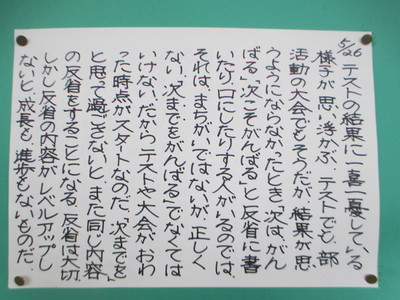 5/26 テストの結果に一喜一憂している
様子が思い浮かぶ。テストでも、部
活動の大会でもそうだが、結果が思
うようにならなかったとき「次はがん
ばる」「次こそがんばる」と反省に書
いたり、口にしたりする人がいるのでは。
それは、まちがいではないが、正しく
ない。「次までをがんばる」でなくては
いけない。だからテストや大会がおわ
った時点がスタートなのだ。「次までを」
と思って過ごさないと、また同じ内容
の反省をすることになる。反省は大切。
しかし反省の内容がレベルアップし
ないと、成長も、進歩もないものだ。